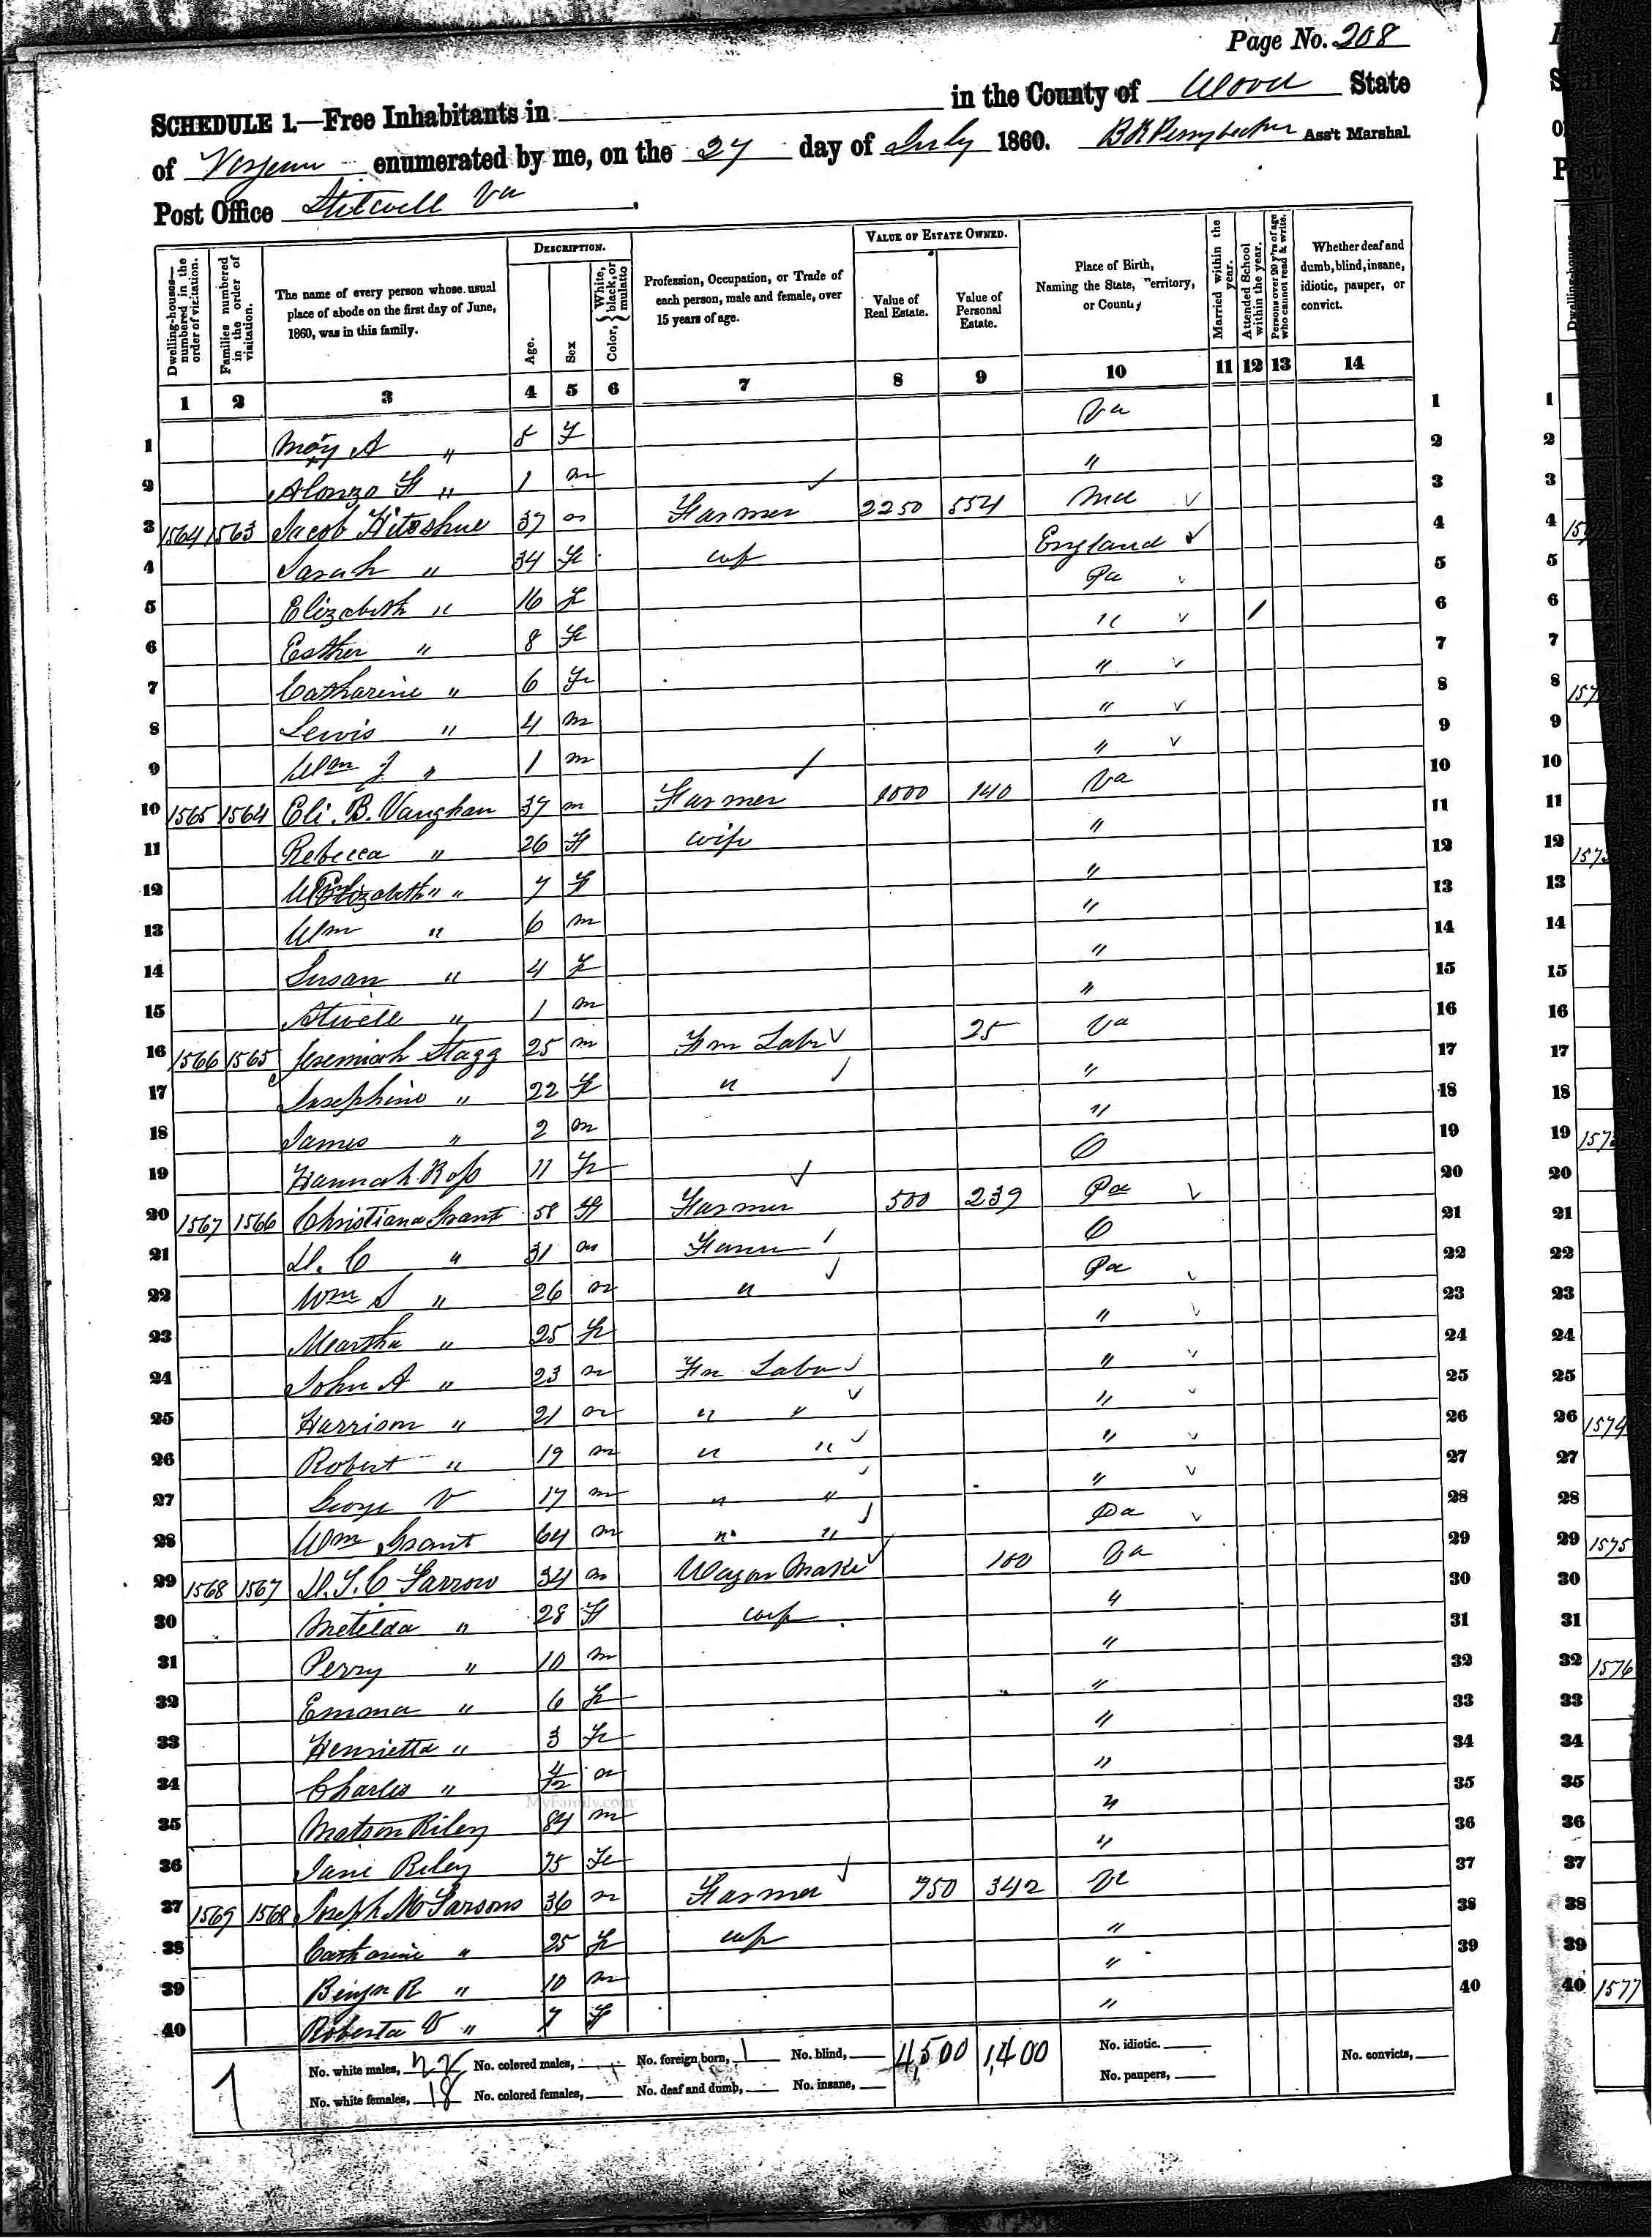 Page No. 208
SCHEDULE 1.—Free Inhabitants in in the County of Wood State
of enumerated by me, on the 27 day of July 1860. Ass't Marshal
Post Office Va
DESCRIPTION. VALUE OF ESTATE OWNED.
Dwelling-houses—numbered in the order of visitation. Families numbered in the order of visitation. The name of every person whose usual place of abode on the first day of June, 1860, was in this family. Age. Sex Color, White, black, or mulatto Profession, Occupation, or Trade of each person, male and female, over 15 years of age. Value of Real Estate. Value of Personal Estate. Place of Birth, Naming the State, Territory, or Country Married within the year. Attended School within the year. Persons over 20 y'rs of age who cannot read & write. Whether deaf and dumb, blind, insane, idiotic, pauper, or convict.
1 2 3 4 5 6 7 8 9 10 11 12 13 14
1 Mary A " 8 F Va 1
2 Alonzo F " 1 m " 2
3 1564 1563 Jacob 37 m Farmer 2250 554 Md 3
4 Sarah " 34 F wif England 4
5 Elizabeth " 16 F Pa 5
6 Esther " 8 F " / 6
7 Catharine " 6 F " 7
8 Lewis " 4 m " 8
9 Wm J " 1 m " 9
10 1565 1564 Eli. B. Vaughan 37 m Farmer 1000 140 Va 10
11 Rebecca " 26 F wife " 11
12 Elizabeth " " 7 F " 12
13 Wm " 6 m " 13
14 Susan " 4 F " 14
15 Atwell " 1 m " 15
16 1566 1565 Jeremiah Stagg 25 m Fm Labr 25 Va 16
17 Josephine " 22 F " " 17
18 James " 2 m " 18
19 Hannah Ross 11 F O 19
20 1567 1566 Christiana Grant 58 F Farmer 500 239 Pa 20
21 D. C " 31 m Farm O 21
22 Wm S " 26 m " Pa 22
23 Meartha " 25 F " 23
24 John A " 23 m Fm Labor " 24
25 Harrison " 21 m " " " 25
26 Robert " 19 m " " " 26
27 George V 17 m " " " 27
28 Wm Grant 64 m " " Pa 28
29 1568 1567 D. S. C Farrow 34 m Wagon Maker 100 Va 29
30 Metelda " 28 F wif " 30
31 Perry " 10 m " 31
32 Emma " 6 F " 32
33 Henrietta " 3 F " 33
34 Charles " 4/12 m " 34
35 Matson Riley 84 m " 35
36 Jane Riley 75 F " 36
37 1569 1568 Joseph M Parsons 36 m Farmer 750 342 Va 37
38 Catharine " 25 F wif " 38
39 Benjn R " 10 m " 39
40 Roberta V " 7 F " 40
No. white males, 22 No. colored males, No. foreign born, 1 No. blind, 4,500 1,400 No. idiotic. No. convicts,
No. white females, 18 No. colored females, No. deaf and dumb, No. insane, No. paupers,
MyFamily.com